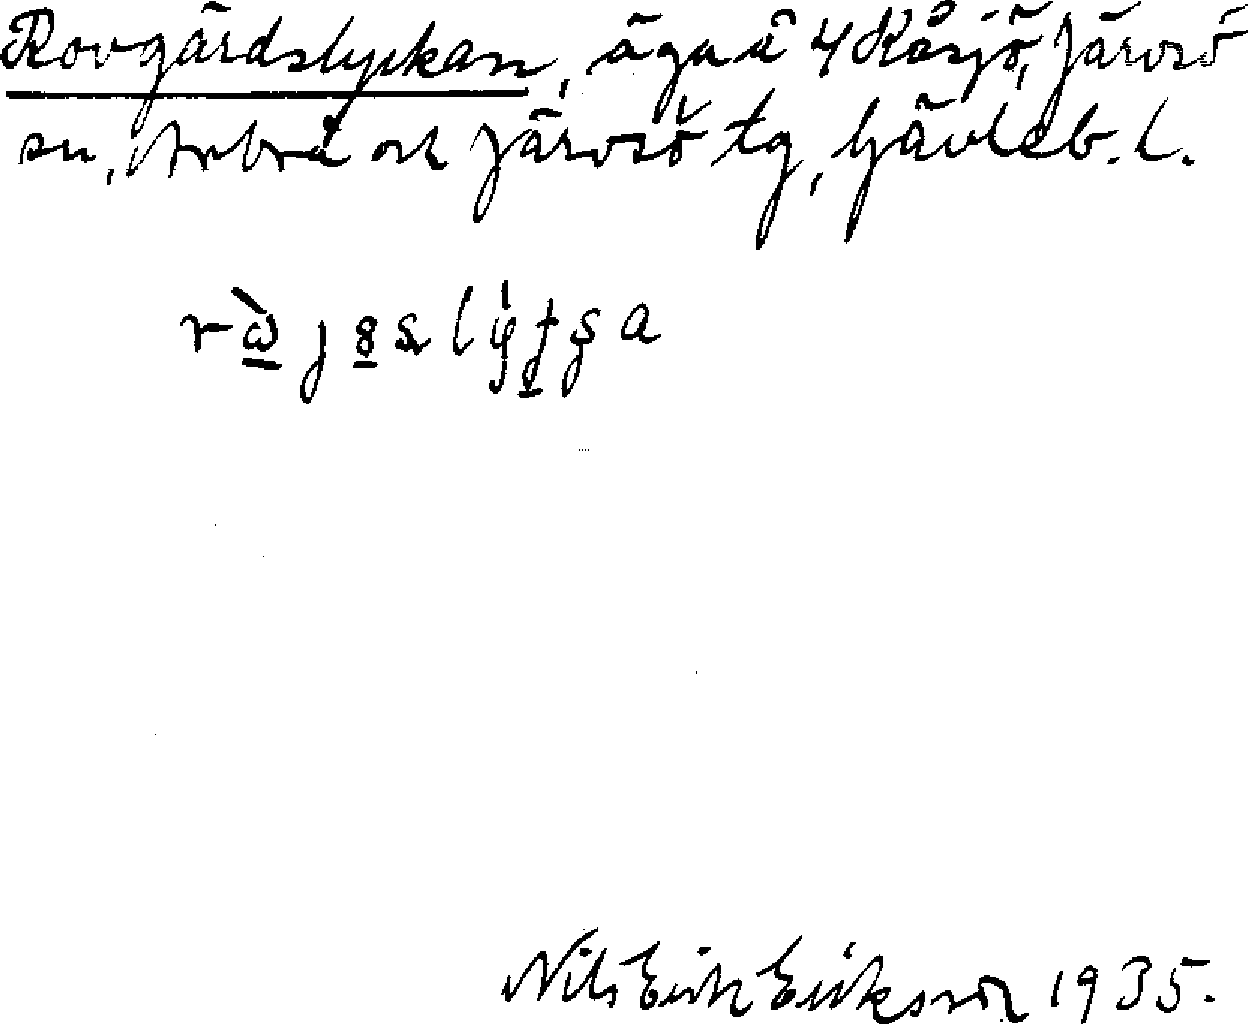 Rovgärdslyckan, äga å 4 Kåsjö, Järvsö
sn, Arbrå och Järvsö tg, Gävleb. l.
Nils Erik Eriksson 1935.